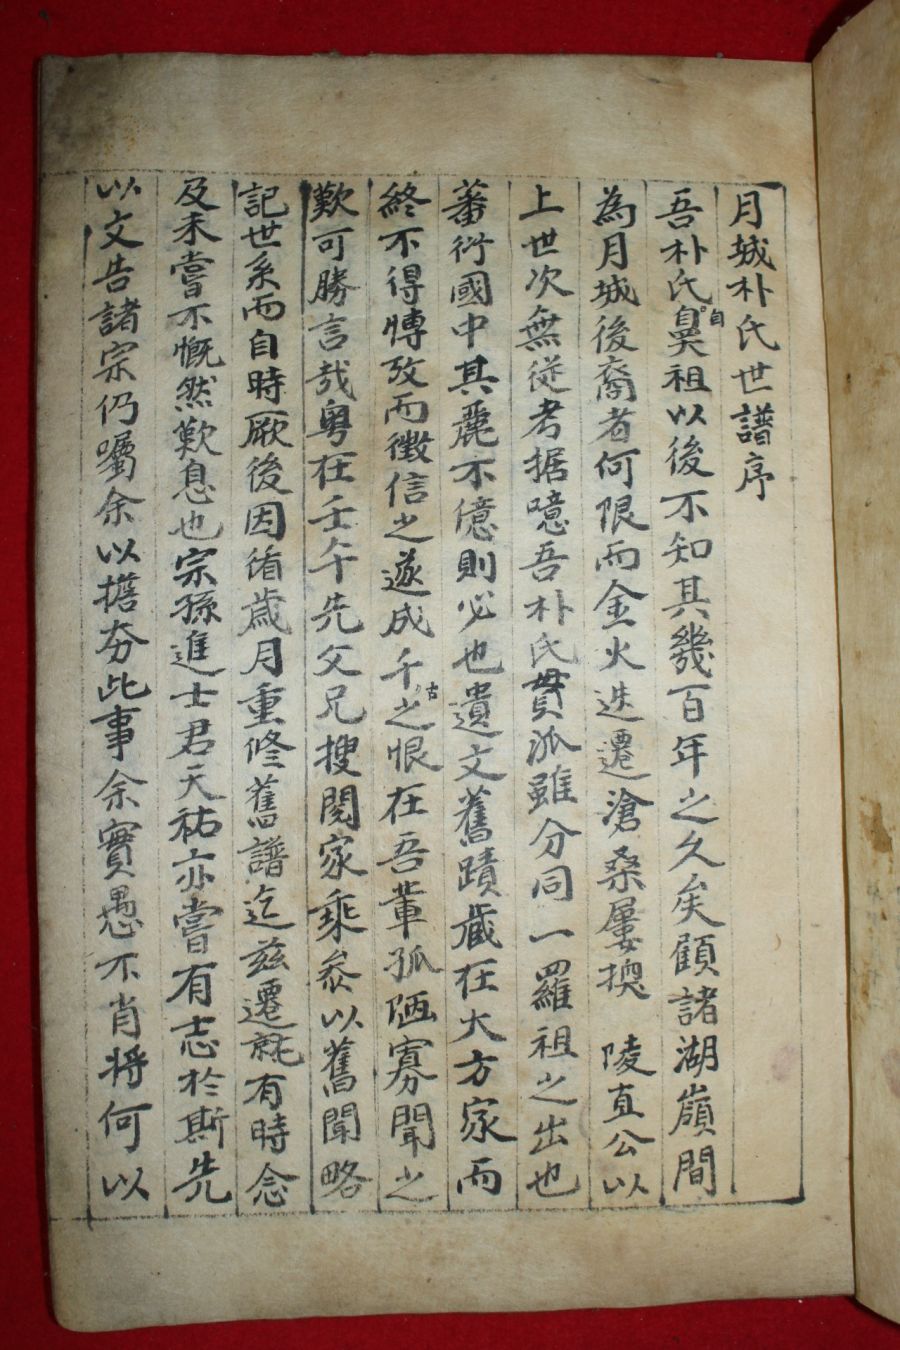 月城朴氏世譜序
吾朴氏自鼻祖以後不知其幾百年之久矣顧諸湖嶺間
為月城後裔者何限而金火迭遷滄桑屢換 陵直公以
上世次無從考据噫吾朴氏貫派雖分同一羅祖之出也
蕃衍國中其麗不億則必也遺文舊蹟藏在大方家而
終不得博攷而徵信之遂成千古之恨在吾輩孤陋寡聞之
歎可勝言哉粤在壬午先父兄搜閱家乘叅以舊聞略
記世系而自時厥後因循歲月重修舊譜迄玆遷就有時念
及未嘗不慨然歎息也宗孫進士君天祐亦嘗有志於斯先
以文告諸宗仍囑余以擔夯此事余實愚不肖將何以